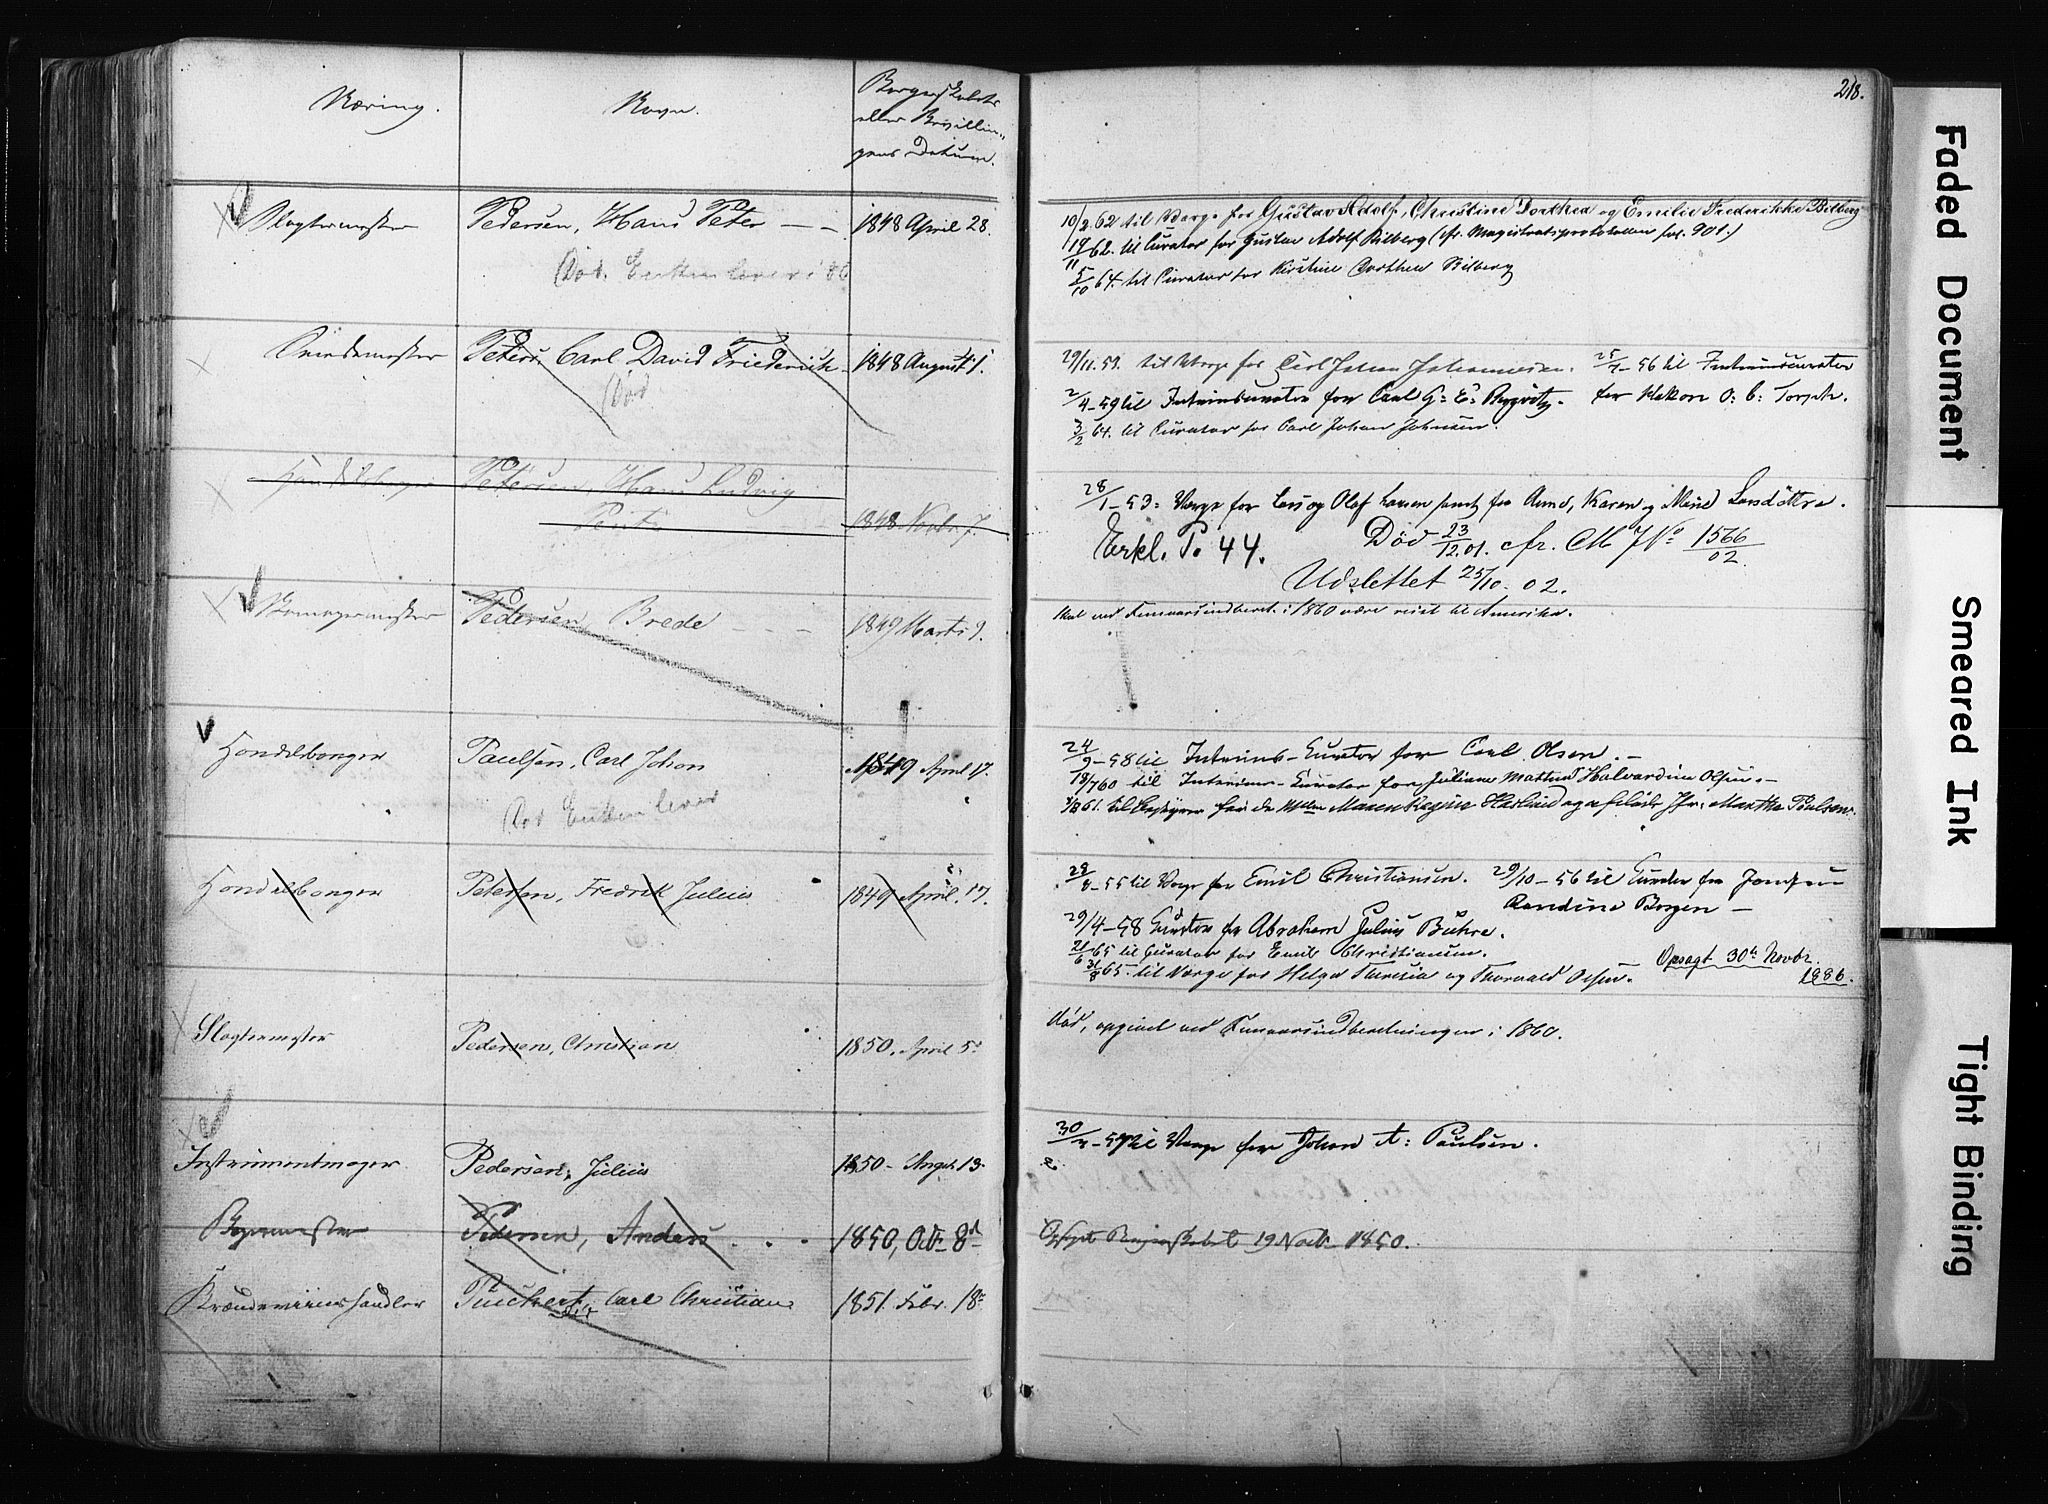 Næring.
Navn.
Borgerskabets
eller Bevillin-
gens Datum.
218.
Slagtermester
Pedersen, Hans Peter
1848 April 28.
Død. Enken lever i 86
10/2 62 til Værge for Gustav Adolf, Christine Dorthea og Emilie Frederikke Bilberg
19/11 62. til Curator for Gustav Adolf Bilberg (cfr. Magistratsprotokollen fol. 901.)
5/10 64. til Curator for Kirstine Dorthea Bilberg
Snedkermester
Peters, Carl David Friederich
1848 August 1.
Død
29/11. 59. til Værge for Carl Johan Johannesen.
25/7-56 til Interimscurator
for Hakon O: C: Torp
2/4-59 til Interimscurator for Carl G: E:
3/2 64. til Curator for Carl Johan Johnsen.
Handelsborger
Petersen, Hans Ludvig
1848 Novbr 7.
28/1-53: Værge for Lars og Olof Larsen samt for Anne, Karen og Marie Larsdøttre.
Erkl. P. 44.
Død 23/12.01. cfr. M J No 1566/02.
Udslettet 25/10. 02.
Garvermester
Pedersen, Brede
1849 Marts 9.
Skal ved Femaarsindberet. i 1860 være reist til Amerika.
Handelsborger
Paulsen, Carl Johan
1849 April 17.
Død Enken lever
24/9-58 til Interims-Curator for Carl Olsen.
18/7 60 til Interims-Curator for Juliane Mathea Halvardine Olsen.
61. til Bestyrer for Maren Regine og Martha Poulsen.
Handelsborger
Petersen, Fredrik Julius
1849 April. 17.
-55 til Værge for Emil Christiansen.
29/10-56 til Curator for Jomfru
Randine Borgen
29/4-58 Curator for Abraham Julius Buhre.
21/6 65 til Curator for Emil Christiansen.
31/8 65. til Værge for Helga Theresia og Thorvald Olsen.
Opsagt 30te Novbr.
1886.
Slagtermester
Pedersen, Christian
1850. April 5.
død, opgivet ved Femaarsindberetningen i 1860.
Instrumentmager
Pedersen, Julius
1850 - Augst. 13.
30/3-57 til Værge for Johan A: Paulsen.
Bagermester
Pedersen, Anders
1850, Oct. 8d
Opsagt Borgerskabet 19 Novb. 1850.
Brændeviinshandler
Puckert, Carl Christian
Død
1851. Febr. 18.
Faded Document
Smeared Ink
Tight Binding